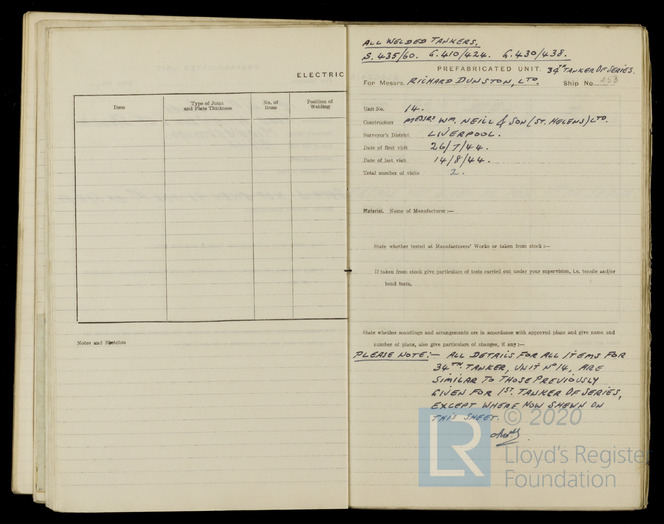 ELECTRIC
Date
Type of Joint and Plate Thickness
No. of Runs
Position of Welding
Notes and Sketches
ALL WELDED TANKERS.
S.435/60. G.410/424. G.430/438.
PREFABRICATED UNIT. 34TH TANKER OF SERIES.
For Messrs. RICHARD DUNSTON, LTD. Ship No 253
Unit No. 14.
Constructors MESSRS WM. NEILL & SON (ST. HELENS) LTD.
Surveyor's District LIVERPOOL.
Date of first visit 26/7/44.
Date of last visit 14/8/44.
Total number of visits 2.
Material. Name of Manufacturer:—
State whether tested at Manufacturers' Works or taken from stock:—
If taken from stock give particulars of tests carried out under your supervision, i.e. tensile and/or
bend tests.
State whether scantlings and arrangements are in accordance with approved plans and give name and
number of plans, also give particulars of changes, if any:—
PLEASE NOTE:— ALL DETAILS FOR ALL ITEMS FOR
34TH TANKER, UNIT No 14, ARE
SIMILAR TO THOSE PREVIOUSLY
GIVEN FOR 1ST. TANKER OF SERIES,
EXCEPT WHERE NOW SHEWN ON
THIS SHEET.
© 2020
LR Lloyd's Register
Foundation